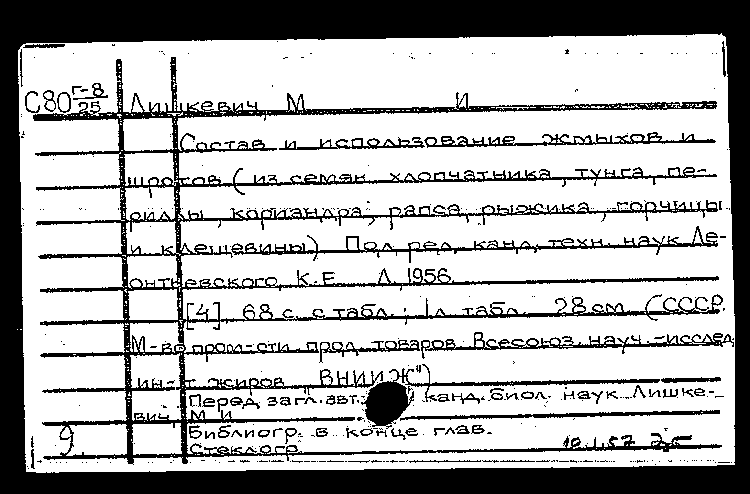 С80 Г-8/25 Лишкевич, М И
Состав и использование жмыхов и
шротов (из семян хлопчатника, тунга, пе-
риллы, кориандра, рапса, рыжика, горчицы
и клещевины) Под ред. канд. техн. наук Ле-
онтьевского, К.Е Л, 1956
[4], 68 с. с табл.; 1 л табл. 28 см (СССР.
М-во пром-сти прод. товаров. Всесоюз. науч.-исслед
ин-т жиров "ВНИИЖ")
Перед загл. авт. канд. биол. наук Лишке-
вич, М И
Библиогр. в конце глав.
9. Стеклогр.